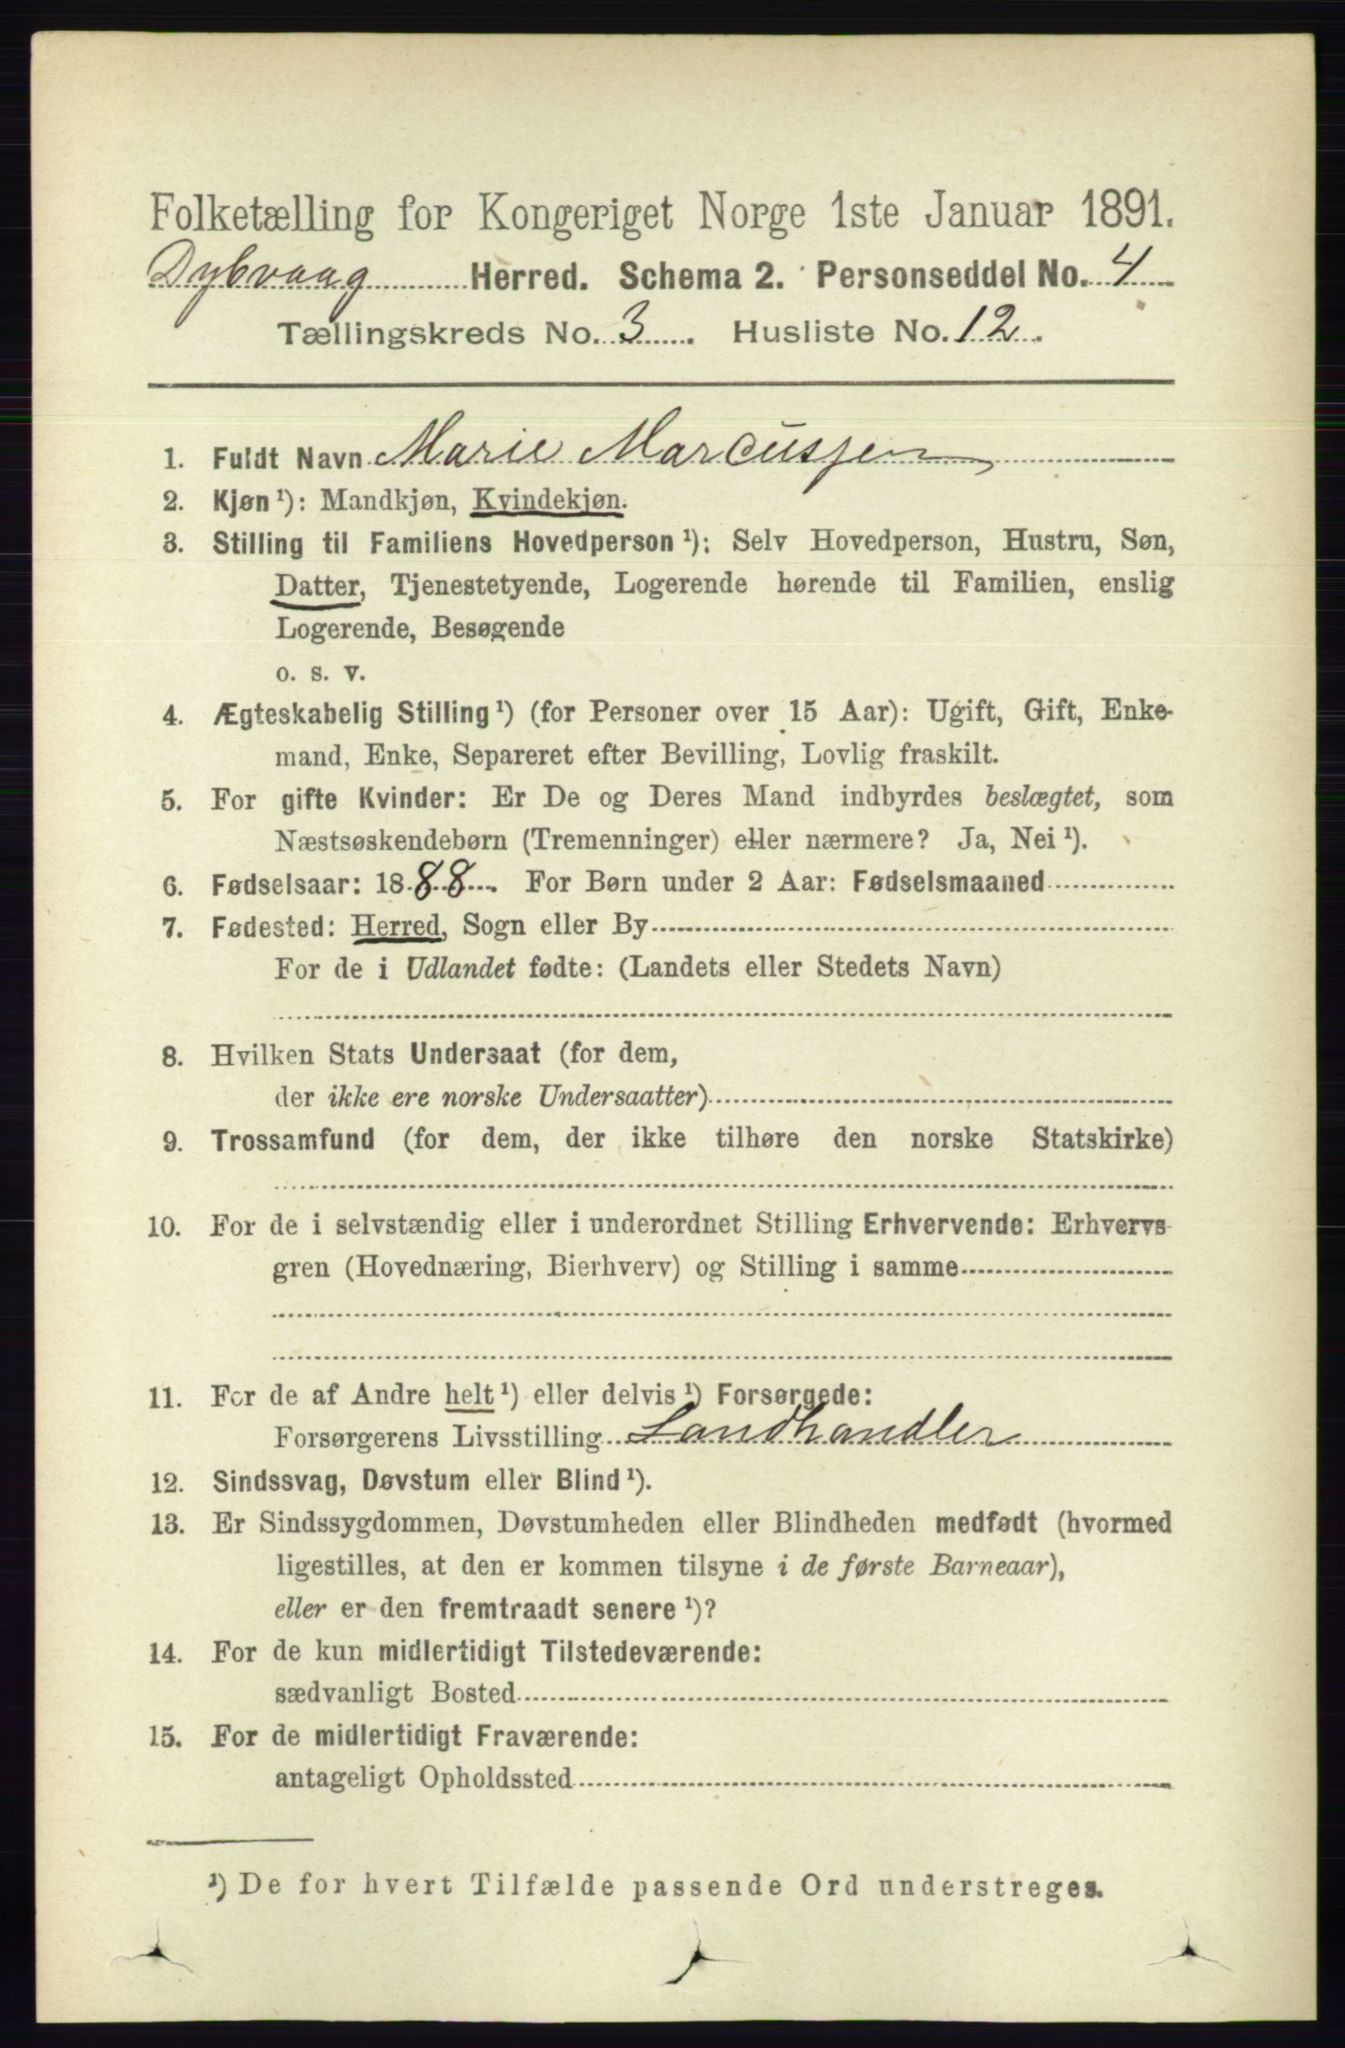 Folketælling for Kongeriget Norge 1ste Januar 1891.
Dybvaag Herred. Schema 2. Personseddel No. 4
Tællingskreds No. 3. Husliste No. 12.
1. Fuldt Navn Marie Marcussen
2. Kjøn ¹): Mandkjøn, Kvindekjøn.
3. Stilling til Familiens Hovedperson ¹): Selv Hovedperson, Hustru, Søn,
Datter, Tjenestetyende, Logerende hørende til Familien, enslig
Logerende, Besøgende
o. s. v.
4. Ægteskabelig Stilling ¹) (for Personer over 15 Aar): Ugift, Gift, Enke-
mand, Enke, Separeret efter Bevilling, Lovlig fraskilt.
5. For gifte Kvinder: Er De og Deres Mand indbyrdes beslægtet, som
Næstsøskendebørn (Tremenninger) eller nærmere? Ja, Nei ¹).
6. Fødselsaar: 1888. For Børn under 2 Aar: Fødselsmaaned
7. Fødested: Herred, Sogn eller By
For de i Udlandet fødte: (Landets eller Stedets Navn)
8. Hvilken Stats Undersaat (for dem,
der ikke ere norske Undersaatter)
9. Trossamfund (for dem, der ikke tilhøre den norske Statskirke)
10. For de i selvstændig eller i underordnet Stilling Erhvervende: Erhvervs-
gren (Hovednæring, Bierhverv) og Stilling i samme
11. For de af Andre helt ¹) eller delvis ¹) Forsørgede:
Forsørgerens Livsstilling Landhandler
12. Sindssvag, Døvstum eller Blind ¹).
13. Er Sindssygdommen, Døvstumheden eller Blindheden medfødt (hvormed
ligestilles, at den er kommen tilsyne i de første Barneaar),
eller er den fremtraadt senere ¹)?
14. For de kun midlertidigt Tilstedeværende:
sædvanligt Bosted
15. For de midlertidigt Fraværende:
antageligt Opholdssted
¹) De for hvert Tilfælde passende Ord understreges.